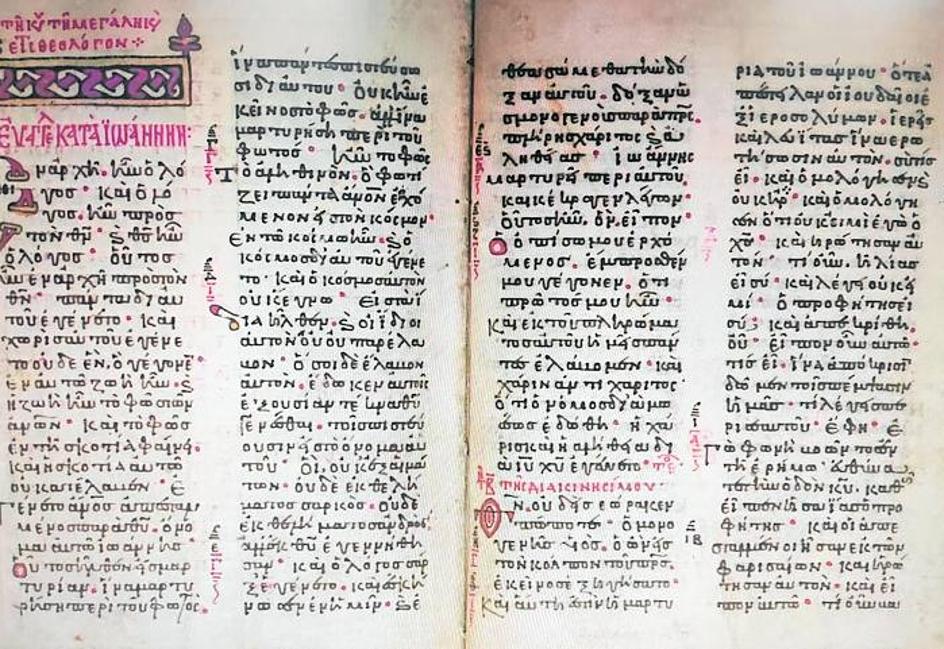 τῆ κυ τῆ μεγάλη κυ
θεολόγον
ΕΥΑΓΓΕ ΚΑΤΑ ΪΩΑΝΝΗΝ:
Ἐν ἀρχῆ ἦν ὁ λό
γος · καὶ ὁ λό
γος ἦν πρὸς
τὸν θν · καὶ θς ἦν
ὁ λόγος · οὗτος
ἦν ἐν ἀρχῆ πρὸς τὸν
θν · πάντα δι αυ
τοῦ ἐγένετο · καὶ
χωρὶς αυτου ἐγένε
το οὐδε ἕν, ὃ γέγονε
ἐν αὐτῶ ζωὴ ἦν · καὶ
ἡ ζωὴ ἦν τὸ φῶς τῶν
ἀνῶν · καὶ τὸ φῶς
ἐν τῆ σκοτία φαίνει
καὶ ἡ σκοτία αυτὸ
οὐ κατέλαβεν · Ἐ
γένετο ἀνος ἀπεσταλ
μένος παρὰ θυ · ὄνο
μα αὐτῶ ἰωάννης
Οὗτος ἦλθεν εἰς μαρ
τυρίαν · ἵνα μαρτυ
ρήση περὶ τοῦ φωτός ·
ἵνα πάντες πιστεύσω
σι δι αὐτοῦ · Οὐκ ἦν ἐ
κεῖνος τὸ φῶς · ἀλλ ἵνα
μαρτυρήση περὶ τοῦ
φωτός · ἦν τὸ φῶς
Τὸ ἀληθινὸν · ὃ φωτί
ζει πάντα ἀνον ἐρχό
μενον εἰς τὸν κόσμον ·
Ἐν τῶ κόσμω ἦν · καὶ ὁ
κόσμος δι αυτου ἐγένε
το · καὶ ὁ κόσμος αυτον
οὐκ ἔγνω · Εἰς τὰ ἴ
δια ἦλθεν · καὶ οἱ ἴδιοι
αυτὸν οὐ παρέλα
βον · ὅσοι δὲ ἔλαβον
αυτὸν · ἔδωκεν αυτοῖς
ἐξουσίαν τέκνα θυ
γενέσθαι · τοῖς πιστεύ
ουσιν εἰς τὸ ὄνομα αυ
του · Οἳ, οὐκ ἐξ αἱμά
των · οὐδὲ ἐκ θελή
ματος σαρκὸς · οὐδὲ
ἐκ θελήματος ἀνδρὸς
ἀλλ ἐκ θυ ἐγεννήθη
σαν · καὶ ὁ λόγος σαρξ
ἐγένετο · καὶ ἐσκή
νωσεν ἐν ἡμῖν · καὶ ἐ
θεασάμεθα τὴν δό
ξαν αυτοῦ · δόξαν ὡ
ς μονογενοῦς παρὰ πρς ·
πλήρης χάριτος καὶ ἀ
ληθείας · ἰωάννης
μαρτυρεῖ περὶ αυτου ·
καὶ κέκραγεν λέγων ·
οὗτος ἦν, ὃν, εἶπον ·
Ὁ ὀπίσω μου ἐρχό
μενος · ἔμπροσθεν
μου γέγονεν · ὅτι
πρῶτός μου ἦν ·
Καὶ ἐκ τοῦ πληρώμα
τος αυτοῦ ἡμεῖς πάν
τες ἐλάβομεν · καὶ
χάριν ἀντὶ χάριτος ·
Ὅτι ὁ νόμος διὰ μω
σέως ἐδόθη · ἡ χά
ρις καὶ ἡ ἀλήθεια δι
α ιυ χυ ἐγένετο · τε
τῆ διακινησίμου ·
Θν οὐδεὶς ἑώρακεν
πώποτε · ὁ μονο
γενὴς υἱός · ὁ ὢν εἰς
τὸν κόλπον τοῦ πρς ·
ἐκεῖνος ἐξηγήσατο ·
Καὶ αὕτη ἐστὶν ἡ μαρτυ
ρία τοῦ ἰωάννου · ὅτε ἀ
πέστειλαν οἱ ἰουδαῖοι ἐ
ξ ἱεροσολύμων · ἱερεῖς
καὶ λευΐτας ἵνα ἐρω
τήσωσιν αυτόν · σὺ τίς
εἶ · καὶ ὡμολόγησεν καὶ
οὐκ ἠρν · καὶ ὡμολόγη
σεν ὅτι οὐκ εἰμὶ ἐγὼ ὁ
χς · καὶ ἠρώτησαν αυ
τόν · τί οὖν. ἠλίας
εἶ σύ · καὶ λέγει οὐκ εἰ
μί · ὁ προφήτης εἶ
σύ · καὶ ἀπεκρίθη.
οὔ · εἶπον οὖν αυτῶ ·
τίς εἶ · ἵνα ἀπόκρισιν
δῶμεν τοῖς πέμψασιν
ἡμᾶς · τί λέγεις πε
ρὶ σεαυτοῦ · ἔφη · Ἐ
γὼ φωνὴ βοῶντος ἐν
τῆ ἐρήμω · εὐθύνα
τε τὴν ὁδὸν κυ. καθὼς
εἶπεν ἡσαΐας ὁ προ
φήτης · καὶ οἱ ἀπε
σταλμένοι ἦσαν ἐκ τῶν
φαρισαίων · καὶ ἠρώ
τησαν αυτὸν · καὶ εἶ
πον αυτῶ · τί οὖν βα